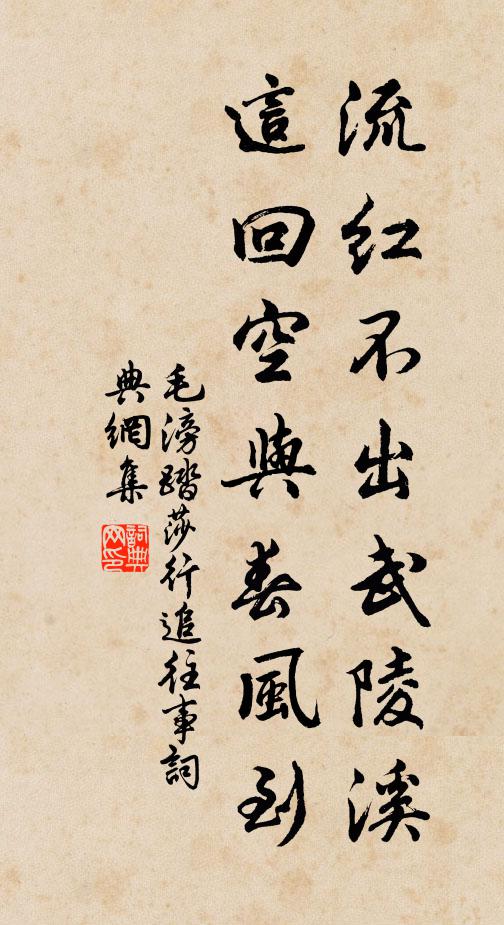 流紅不出武陵溪
這回空與春風到
毛滂踏莎行追往事詞
典網集
詞典網印